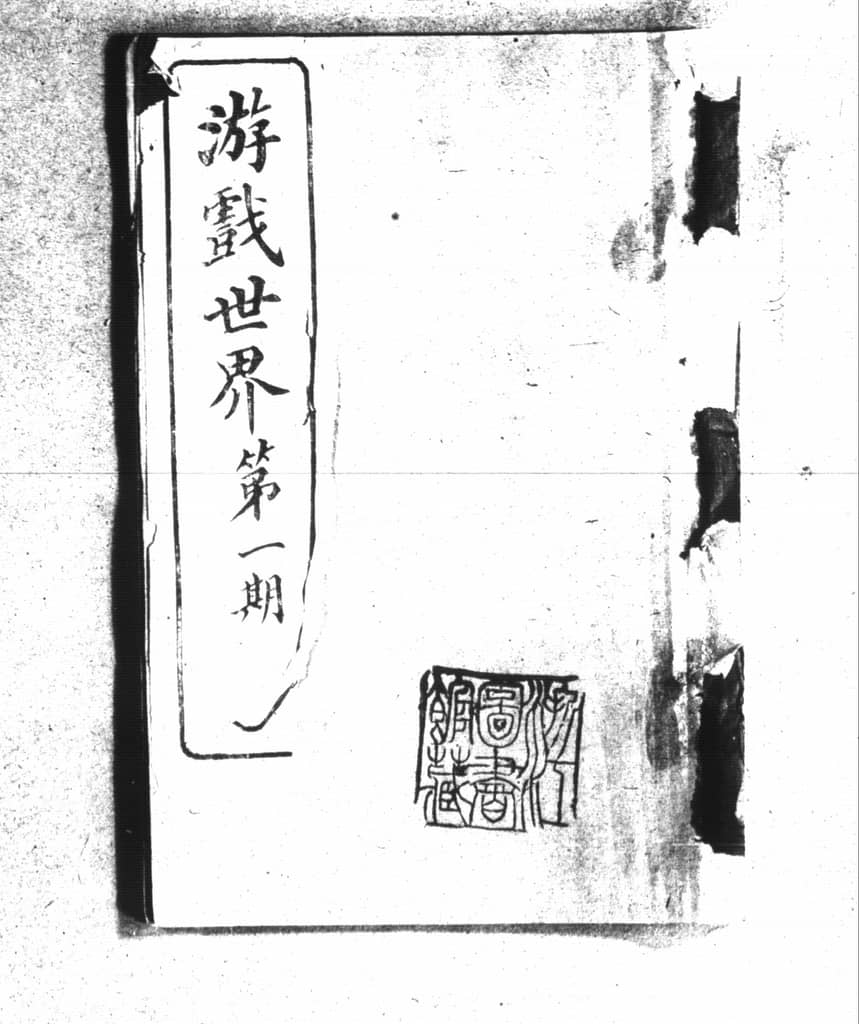 游戲世界第一期
浙江
圖書
館藏